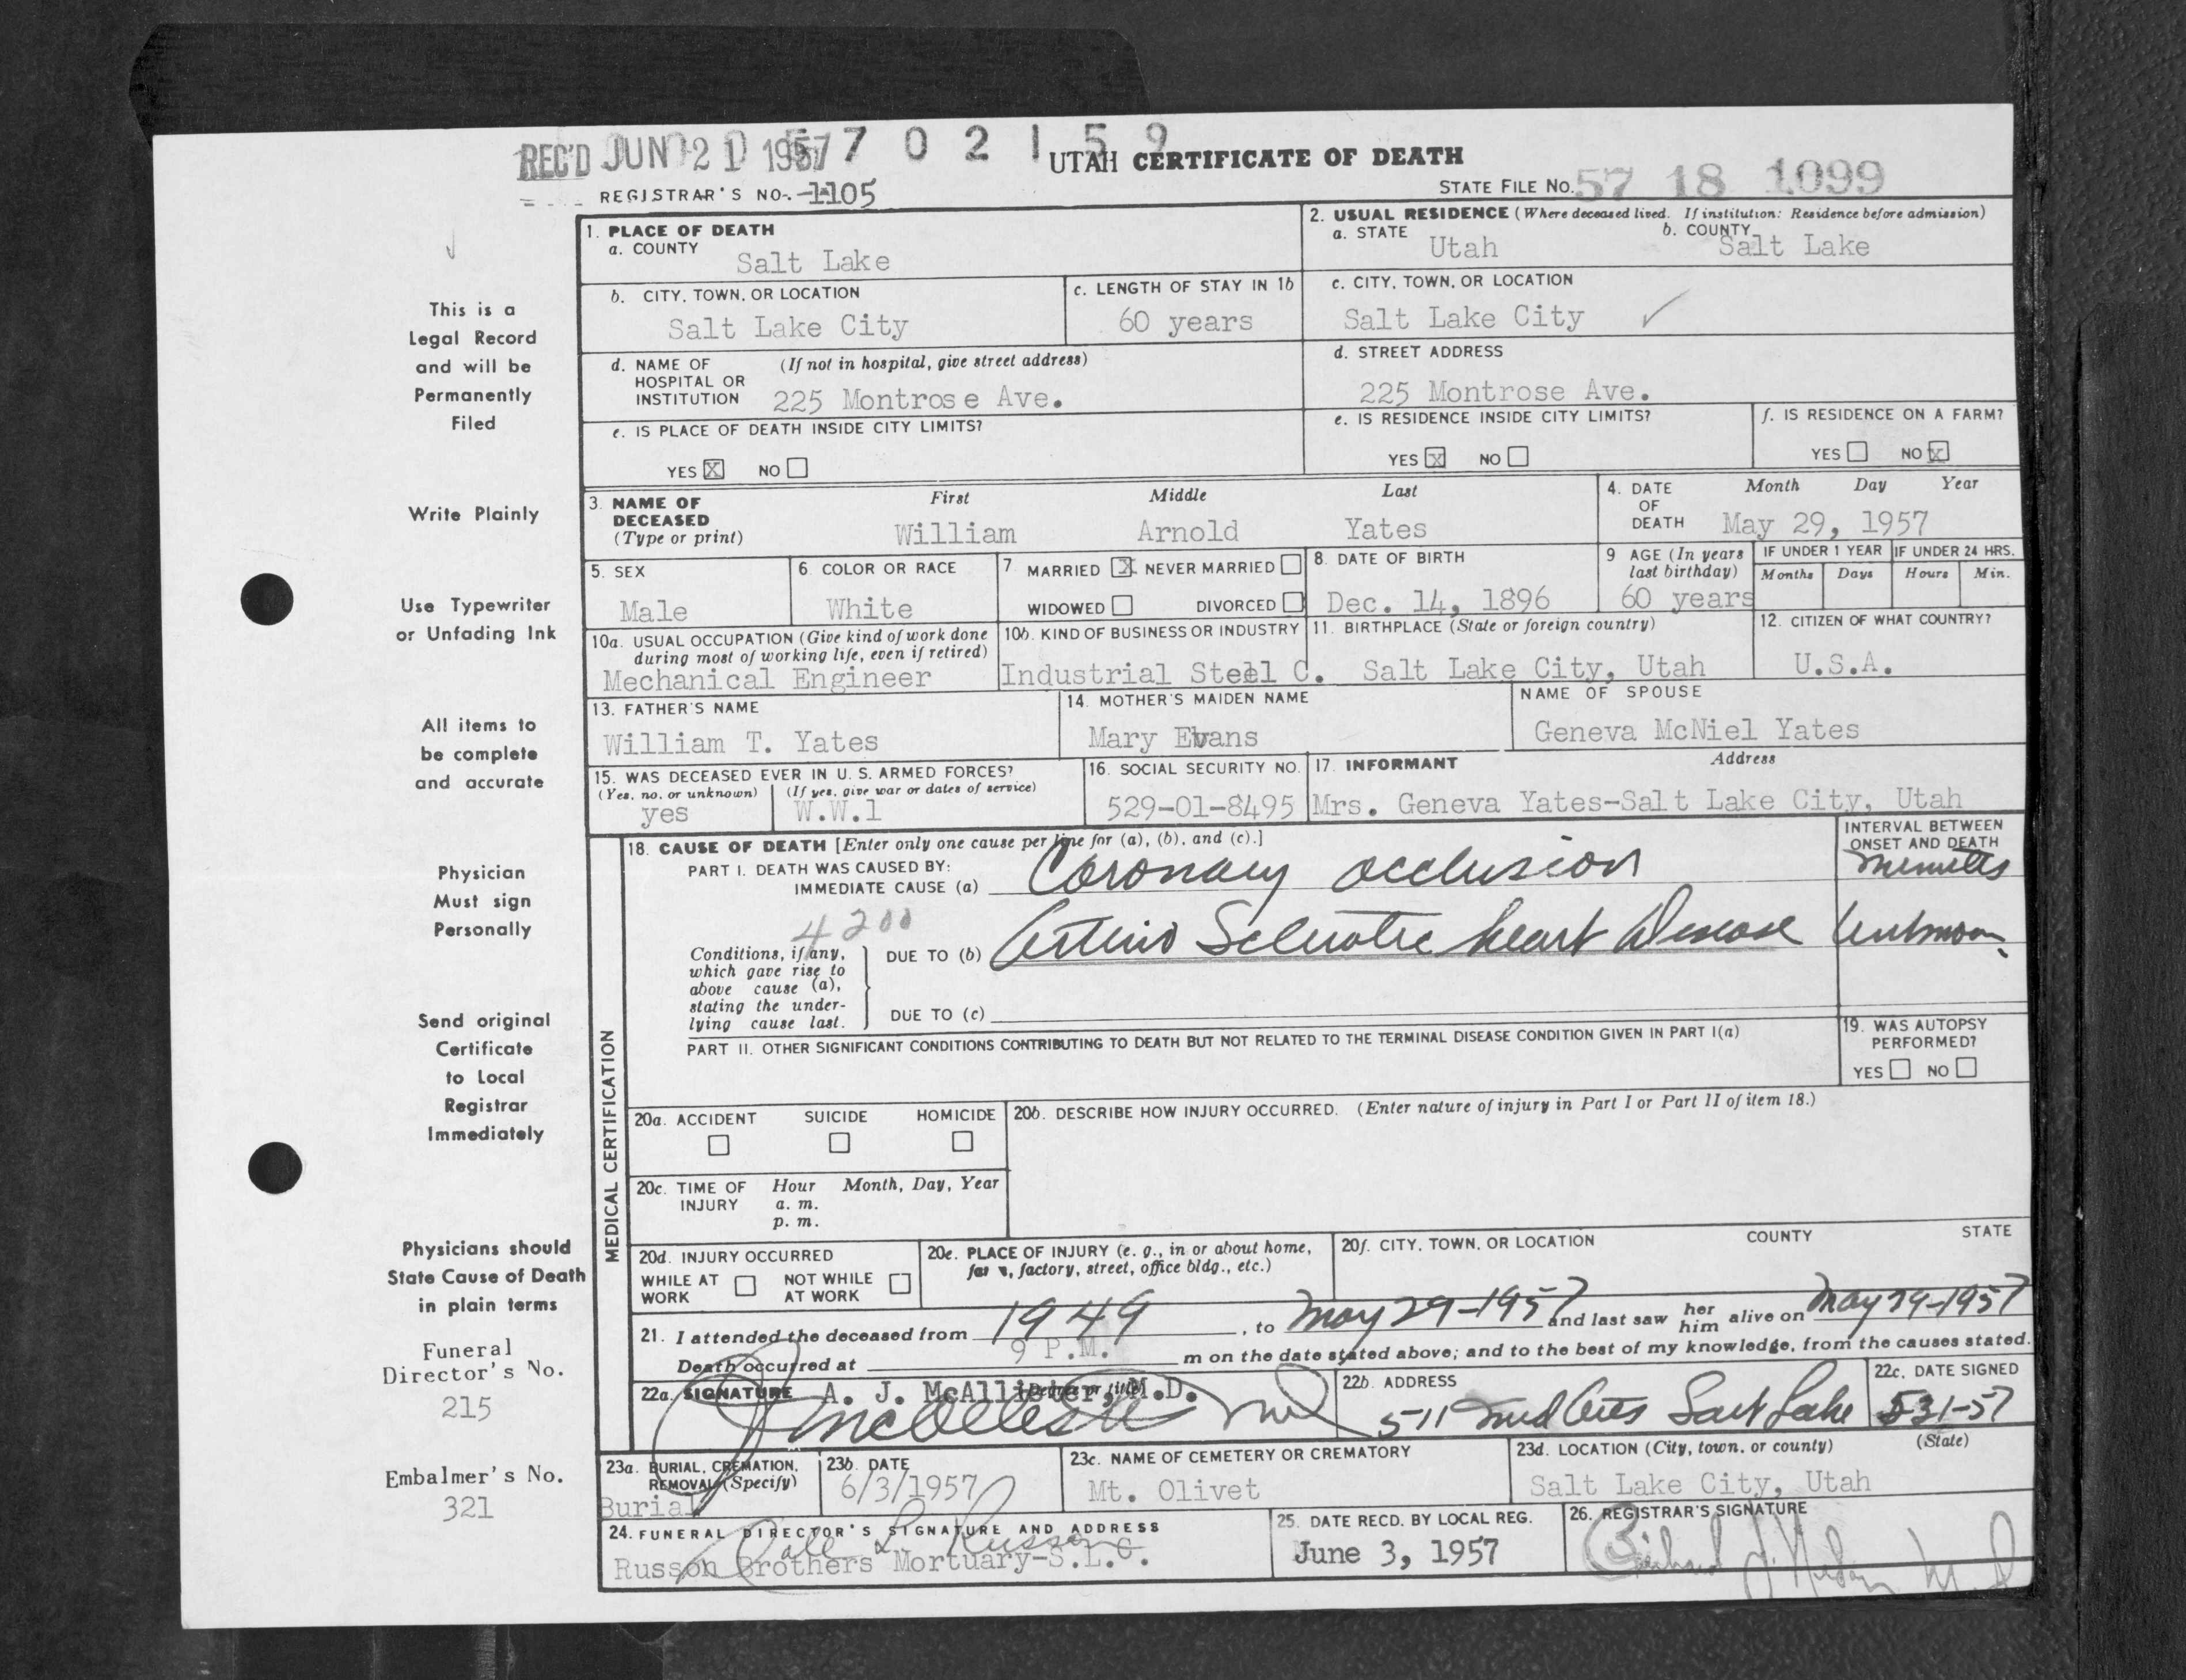 REC'D JUN 21 1957 7 0 2 1 5 9
UTAH CERTIFICATE OF DEATH
REGISTRAR'S NO. 1105
STATE FILE NO. 57 18 1099
This is a
Legal Record
and will be
Permanently
Filed
Write Plainly
Use Typewriter
or Unfading Ink
All items to
be complete
and accurate
Physician
Must sign
Personally
Send original
Certificate
to Local
Registrar
Immediately
Physicians should
State Cause of Death
in plain terms
Funeral
Director's No.
215
Embalmer's No.
321
1. PLACE OF DEATH
a. COUNTY
Salt Lake
2. USUAL RESIDENCE (Where deceased lived. If institution: Residence before admission)
a. STATE Utah b. COUNTY Salt Lake
b. CITY, TOWN, OR LOCATION
Salt Lake City
c. LENGTH OF STAY IN 1b
60 years
c. CITY, TOWN, OR LOCATION
Salt Lake City ✓
d. NAME OF (If not in hospital, give street address)
HOSPITAL OR
INSTITUTION 225 Montrose Ave.
d. STREET ADDRESS
225 Montrose Ave.
e. IS PLACE OF DEATH INSIDE CITY LIMITS?
YES ☒ NO ☐
e. IS RESIDENCE INSIDE CITY LIMITS?
YES ☒ NO ☐
f. IS RESIDENCE ON A FARM?
YES ☐ NO ☒
3. NAME OF
DECEASED
(Type or print)
First Middle Last
William Arnold Yates
4. DATE
OF
DEATH
Month Day Year
May 29, 1957
5. SEX
Male
6. COLOR OR RACE
White
7. MARRIED ☒ NEVER MARRIED ☐
WIDOWED ☐ DIVORCED ☐
8. DATE OF BIRTH
Dec. 14, 1896
9 AGE (In years
last birthday)
60 years
IF UNDER 1 YEAR
Months Days
IF UNDER 24 HRS.
Hours Min.
10a. USUAL OCCUPATION (Give kind of work done
during most of working life, even if retired)
Mechanical Engineer
10b. KIND OF BUSINESS OR INDUSTRY
Industrial Steel C.
11. BIRTHPLACE (State or foreign country)
Salt Lake City, Utah
12. CITIZEN OF WHAT COUNTRY?
U.S.A.
13. FATHER'S NAME
William T. Yates
14. MOTHER'S MAIDEN NAME
Mary Evans
NAME OF SPOUSE
Geneva McNiel Yates
15. WAS DECEASED EVER IN U. S. ARMED FORCES?
(Yes, no, or unknown) (If yes, give war or dates of service)
yes W.W.1
16. SOCIAL SECURITY NO.
529-01-8495
17. INFORMANT Address
Mrs. Geneva Yates-Salt Lake City, Utah
MEDICAL CERTIFICATION
18. CAUSE OF DEATH [Enter only one cause per line for (a), (b), and (c).]
PART I. DEATH WAS CAUSED BY:
IMMEDIATE CAUSE (a) Coronary occlusion
INTERVAL BETWEEN
ONSET AND DEATH
minutes
4200
Conditions, if any,
which gave rise to
above cause (a),
stating the under-
lying cause last.
DUE TO (b) Arterio Sclerotic heart Disease Unknown
DUE TO (c)
PART II. OTHER SIGNIFICANT CONDITIONS CONTRIBUTING TO DEATH BUT NOT RELATED TO THE TERMINAL DISEASE CONDITION GIVEN IN PART I(a)
19. WAS AUTOPSY
PERFORMED?
YES ☐ NO ☐
20a. ACCIDENT SUICIDE HOMICIDE
☐ ☐ ☐
20b. DESCRIBE HOW INJURY OCCURRED. (Enter nature of injury in Part I or Part II of item 18.)
20c. TIME OF Hour Month, Day, Year
INJURY a. m.
p. m.
20d. INJURY OCCURRED
WHILE AT ☐ NOT WHILE ☐
WORK AT WORK
20e. PLACE OF INJURY (e. g., in or about home,
farm, factory, street, office bldg., etc.)
20f. CITY, TOWN, OR LOCATION COUNTY STATE
21. I attended the deceased from 1949, to May 29-1957 and last saw her him alive on May 29-1957
Death occurred at 9 P.M. m on the date stated above; and to the best of my knowledge, from the causes stated.
22a. SIGNATURE (Degree or title)
A. J. McAllister, M.D.
McAllister MD
22b. ADDRESS
511 Med Arts Salt Lake
22c. DATE SIGNED
5-31-57
23a. BURIAL, CREMATION,
REMOVAL (Specify)
Burial
23b. DATE
6/3/1957
23c. NAME OF CEMETERY OR CREMATORY
Mt. Olivet
23d. LOCATION (City, town, or county) (State)
Salt Lake City, Utah
24. FUNERAL DIRECTOR'S SIGNATURE AND ADDRESS
Dale L. Russon
Russon Brothers Mortuary-S.L.C.
25. DATE RECD. BY LOCAL REG.
June 3, 1957
26. REGISTRAR'S SIGNATURE